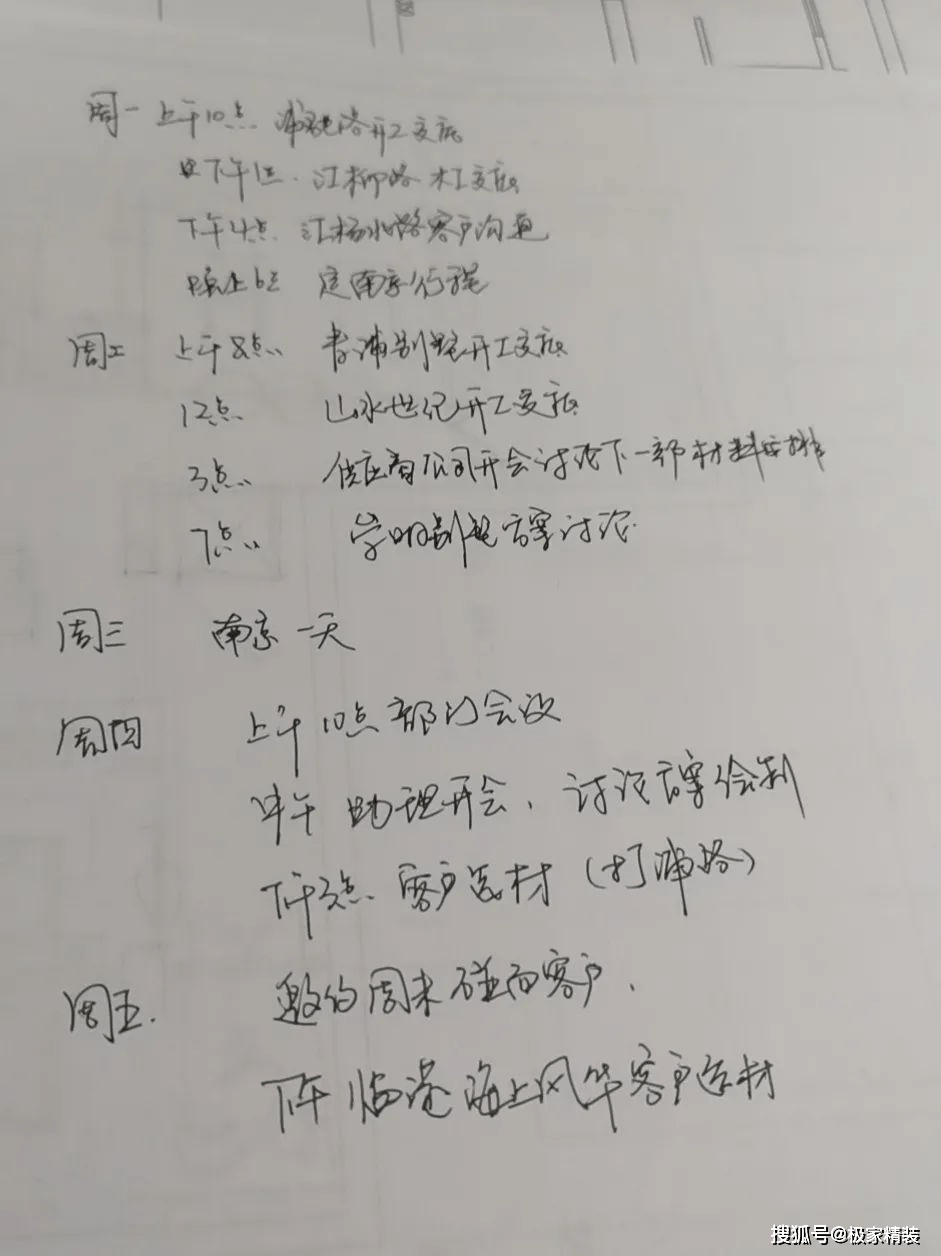 周一 上午10点 开工交底
下午1点 江柳路 木工交底
下午4点 江杨北路客户沟通
晚上6点 定南京行程
周二 上午8点 青浦别墅开工交底
12点 山水世纪开工交底
3点 供应商公司开会讨论下一部材料安排
7点 崇明别墅方案讨论
周三 南京一天
周四 上午10点部门会议
中午 助理开会、讨论方案绘制
下午3点 客户选材(打浦路)
周五. 邀约周末碰面客户、
下午 临港海上风华客户选材
搜狐号@极家精装